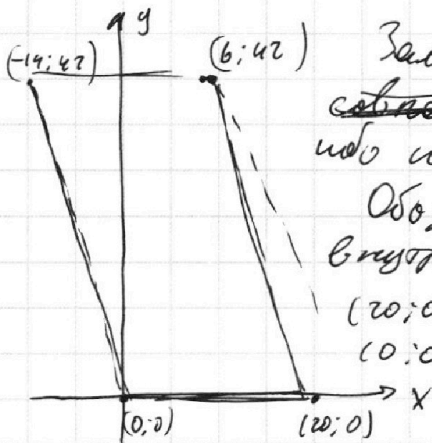 y
(-14; 42)
(6; 42)
Зам
либо
Обо
внутр
(20; 0
(0; 0
x
(0; 0)
(20; 0)